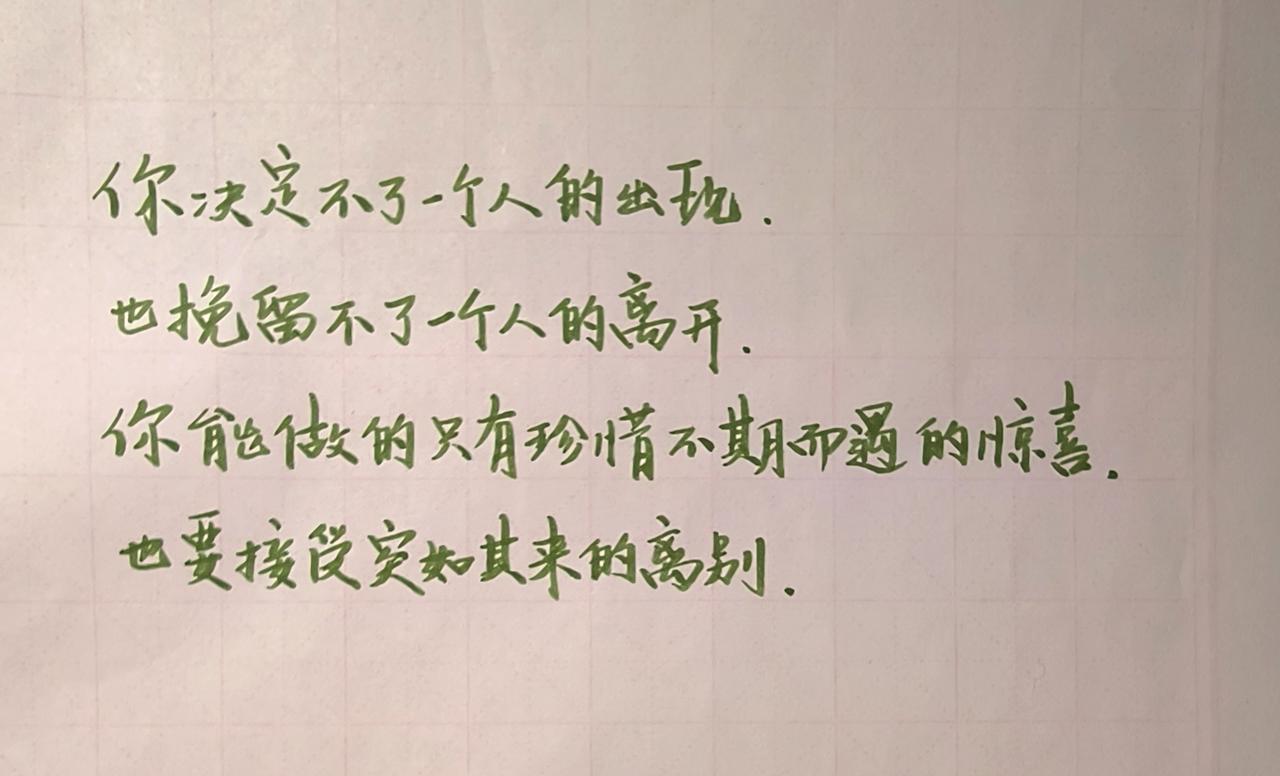 你决定不了一个人的出现.
也挽留不了一个人的离开.
你能做的只有珍惜不期而遇的惊喜.
也要接受突如其来的离别.